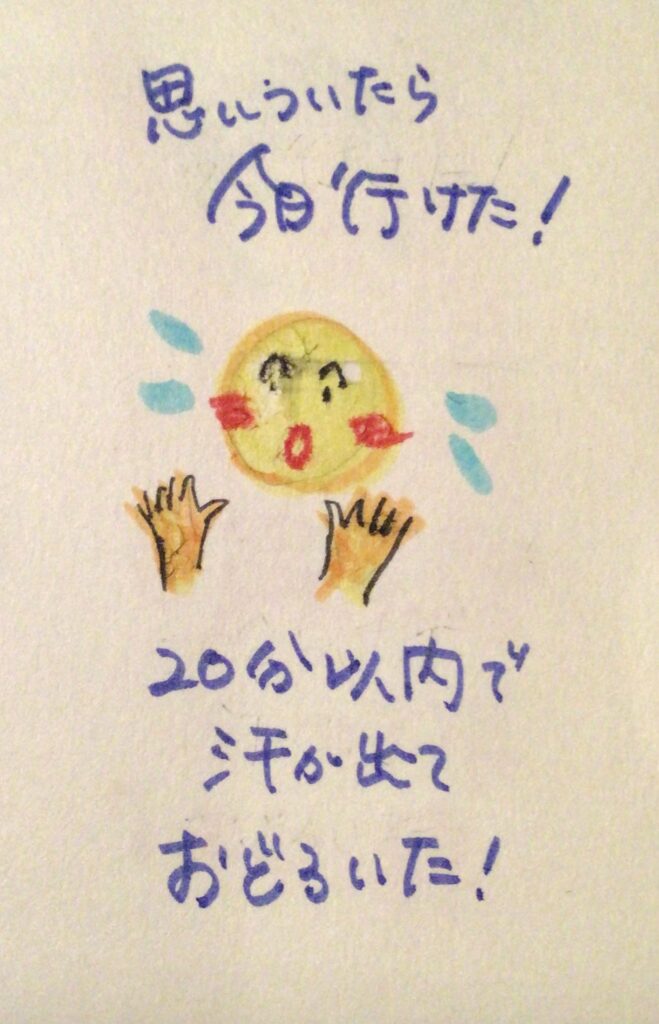 思いついたら
今日行けた!
20分以内で
汗が出て
おどろいた!